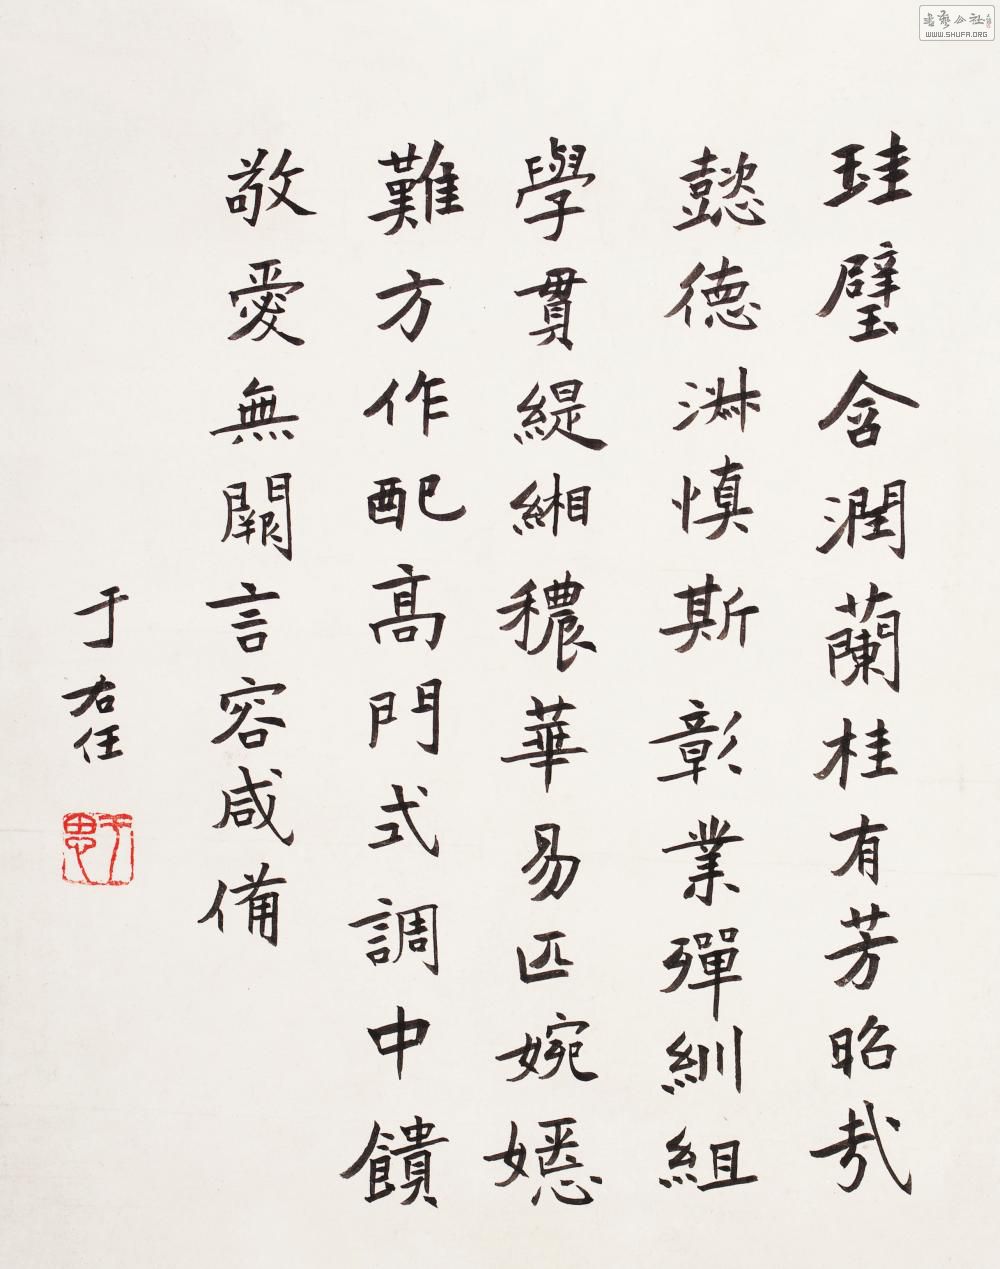 珪璧含潤蘭桂有芳昭哉
懿德淋慎斯彰業彈紃組
學貫緹緗穠華易匹婉嫕
難方作配高門式調中饋
敬愛無闕言容咸備
于右任
WWW.SHUFA.ORG